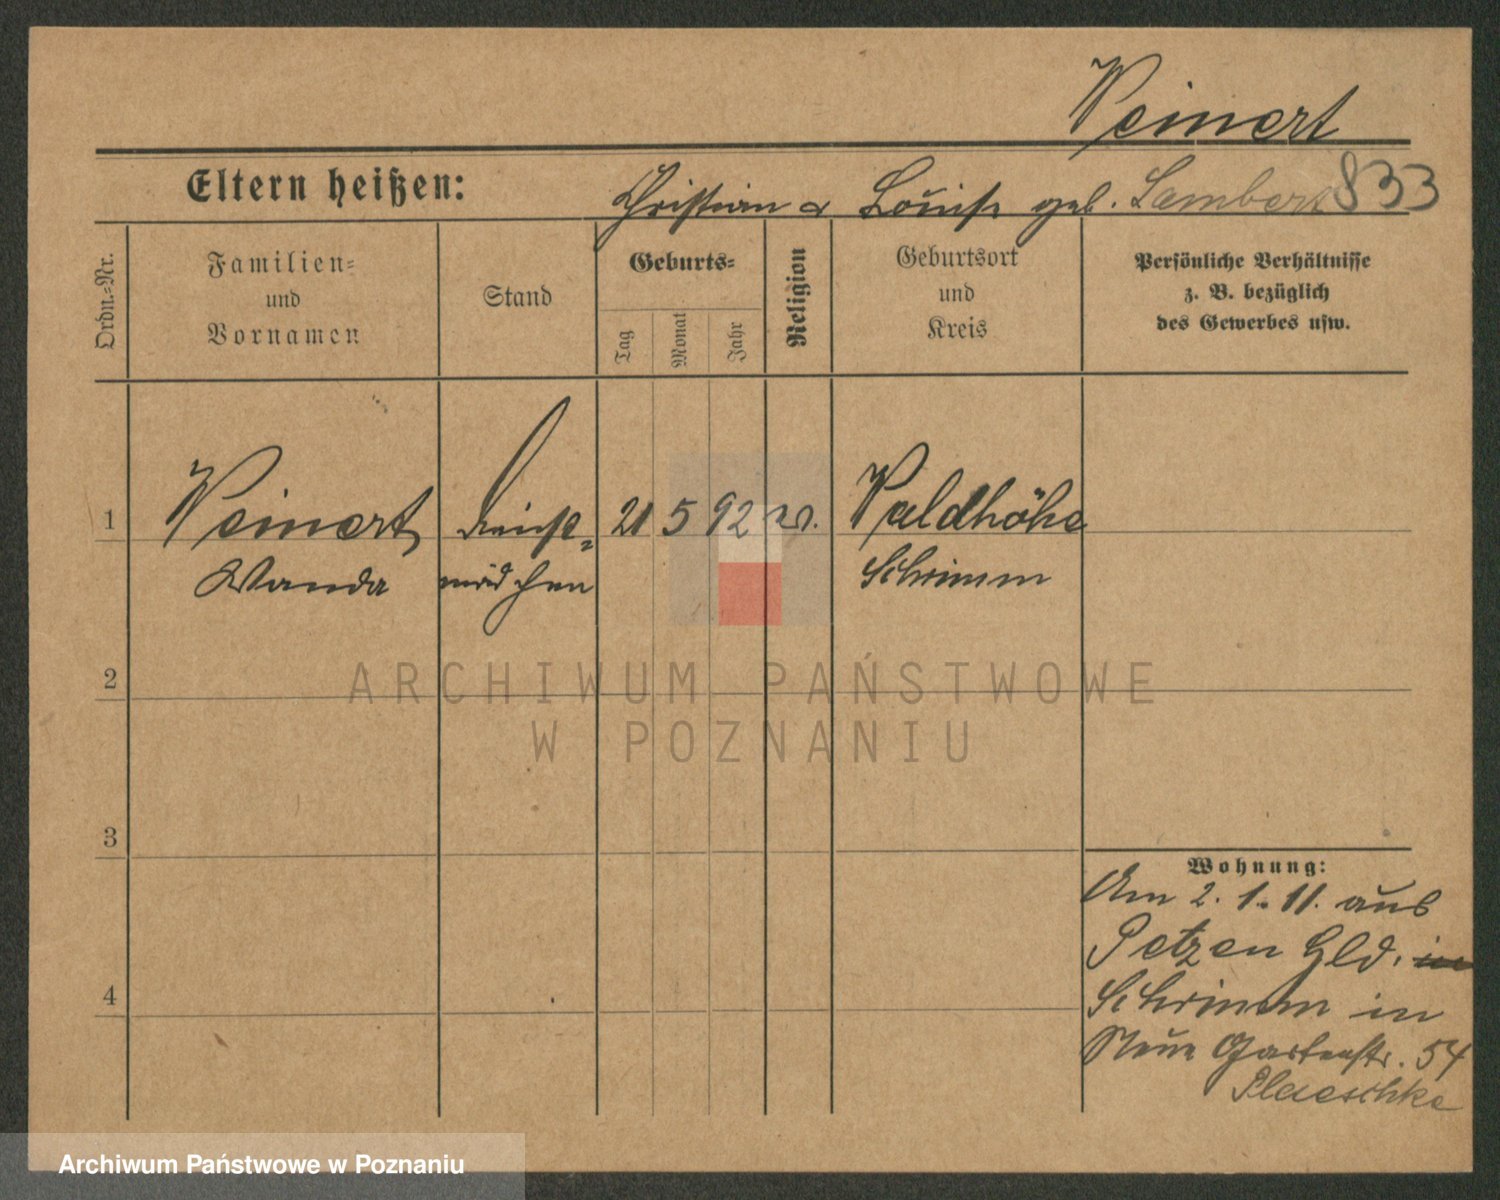 Weinert
Eltern heißen: Christian & Louise geb. Lambert 833
Ordn.-Nr.
Familien-
und
Vornamen
Stand
Geburts-
Tag
Monat
Jahr
Religion
Geburtsort
und
Kreis
Persönliche Verhältnisse
z. B. bezüglich
des Gewerbes usw.
1 Weinert Dienst- 21 5 92 ev. Waldhöhe
Wanda mädchen Schrimm
2
ARCHIWUM PAŃSTWOWE
W POZNANIU
3
Wohnung:
Am 2. 1. 11. aus
Petzen Hld. in
4
Schrimm in
Neue Gartenstr. 54
Plaeschke
Archiwum Państwowe w Poznaniu